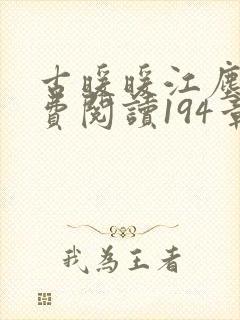 古暖暖江塵
費閱讀194章
我為王者